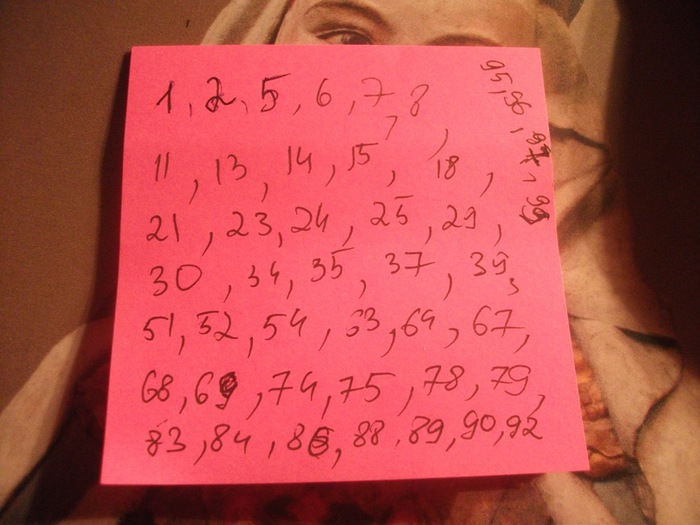 1, 2, 5, 6, 7, 8,
11, 13, 14, 15, 18,
21, 23, 24, 25, 29,
30, 34, 35, 37, 39,
51, 52, 54, 63, 64, 67,
68, 69, 74, 75, 78, 79,
83, 84, 86, 88, 89, 90, 92
95, 96, 97, 99